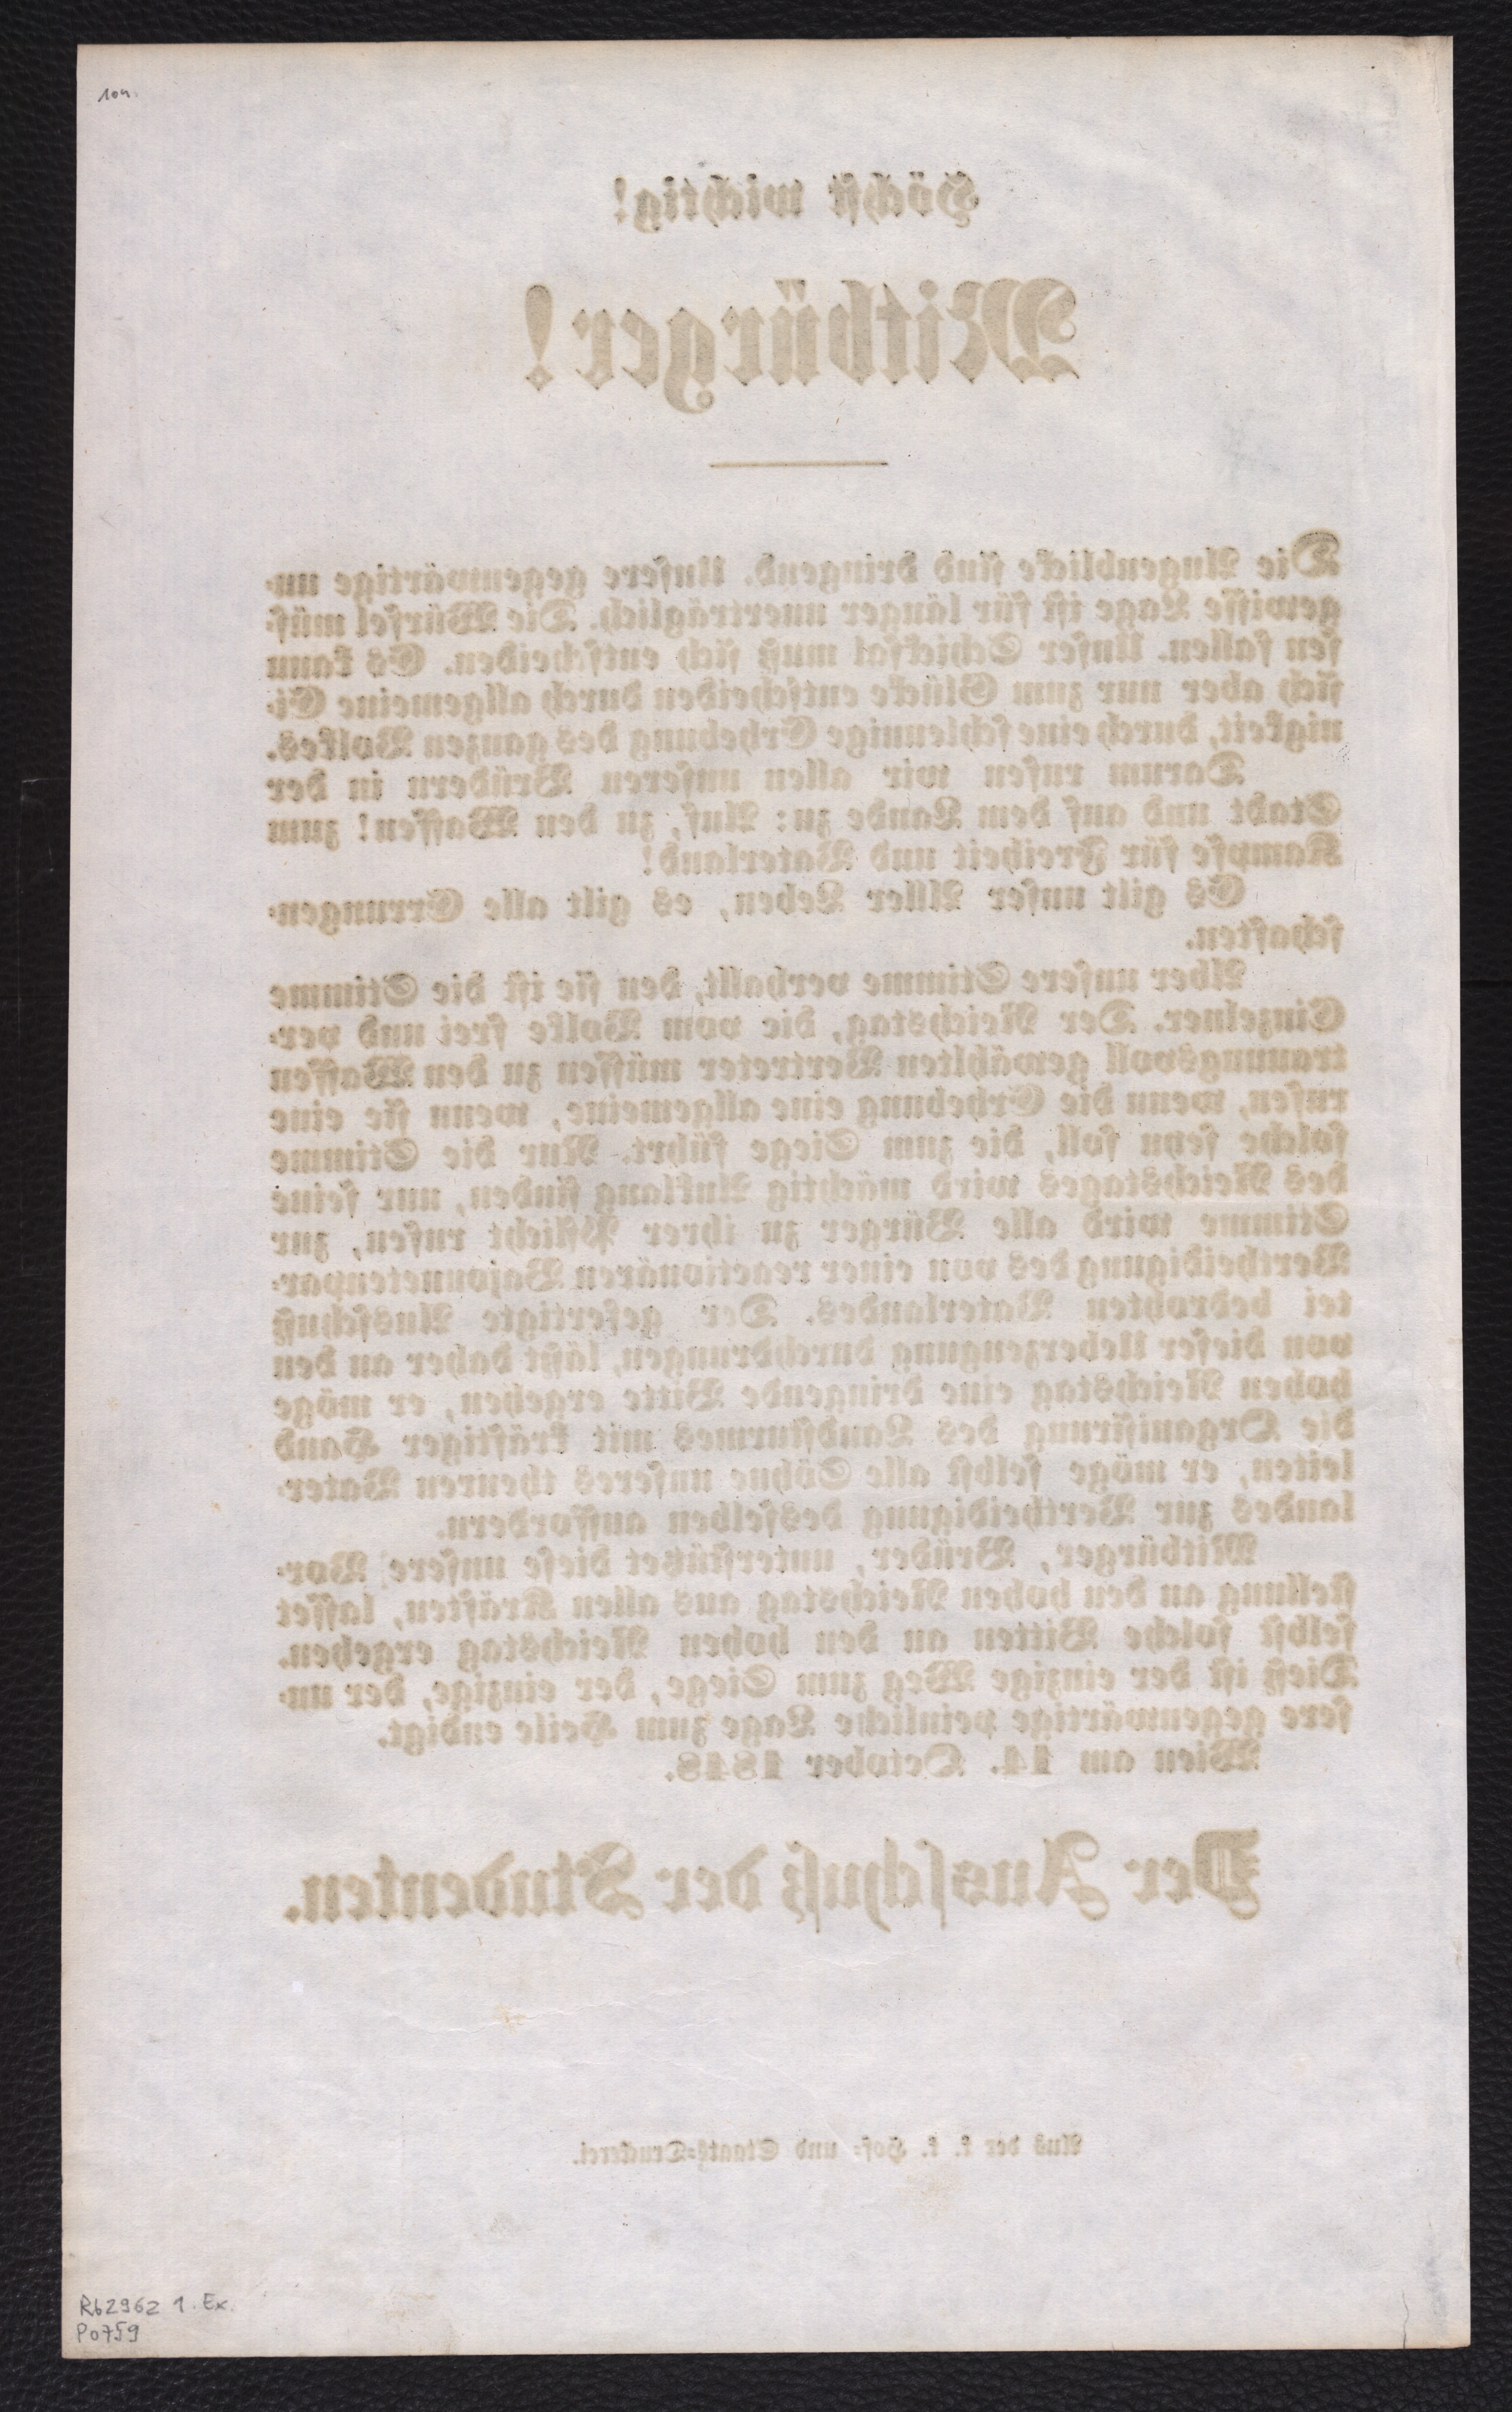 104.
Höchst wichtig!
Mitbürger!
Die Augenblicke sind dringend. Unsere gegenwärtige un-
gewisse Lage ist für länger unerträglich. Die Würfel müs-
sen fallen. Unser Schicksal muß sich entscheiden. Es kann
sich aber nur zum Glücke entscheiden durch allgemeine Ei-
nigkeit, durch eine schleunige Erhebung des ganzen Volkes.
Darum rufen wir allen unseren Brüdern in der
Stadt und auf dem Lande zu: Auf, zu den Waffen! zum
Kampfe für Freiheit und Vaterland!
Es gilt unser Aller Leben, es gilt alle Errungen-
schaften.
Aber unsere Stimme verhallt, den sie ist die Stimme
Einzelner. Der Reichstag, die vom Volke frei und ver-
trauungsvoll gewählten Vertreter müssen zu den Waffen
rufen, wenn die Erhebung eine allgemeine, wenn sie eine
solche seyn soll, die zum Siege führt. Nur die Stimme
des Reichstages wird mächtig Anklang finden, nur seine
Stimme wird alle Bürger zu ihrer Pflicht rufen, zur
Vertheidigung des von einer reactionären Bajonnetenpar-
tei bedrohten Vaterlandes. Der gefertigte Ausschuß
von dieser Ueberzeugung durchdrungen, läßt daher an den
hohen Reichstag eine dringende Bitte ergehen, er möge
die Organisirung des Landsturmes mit kräftiger Hand
leiten, er möge selbst alle Söhne unseres theuren Vater-
landes zur Vertheidigung desselben auffordern.
Mitbürger, Brüder, unterstützet diese unsere Vor-
stellung an den hohen Reichstag aus allen Kräften, lasset
selbst solche Bitten an den hohen Reichstag ergehen.
Dieß ist der einzige Weg zum Siege, der einzige, der un-
sere gegenwärtige peinliche Lage zum Heile endigt.
Wien am 14. October 1848.
Der Ausschuß der Studenten.
Aus der k. k. Hof- und Staats-Druckerei.
Rb2962 1. Ex.
P0759